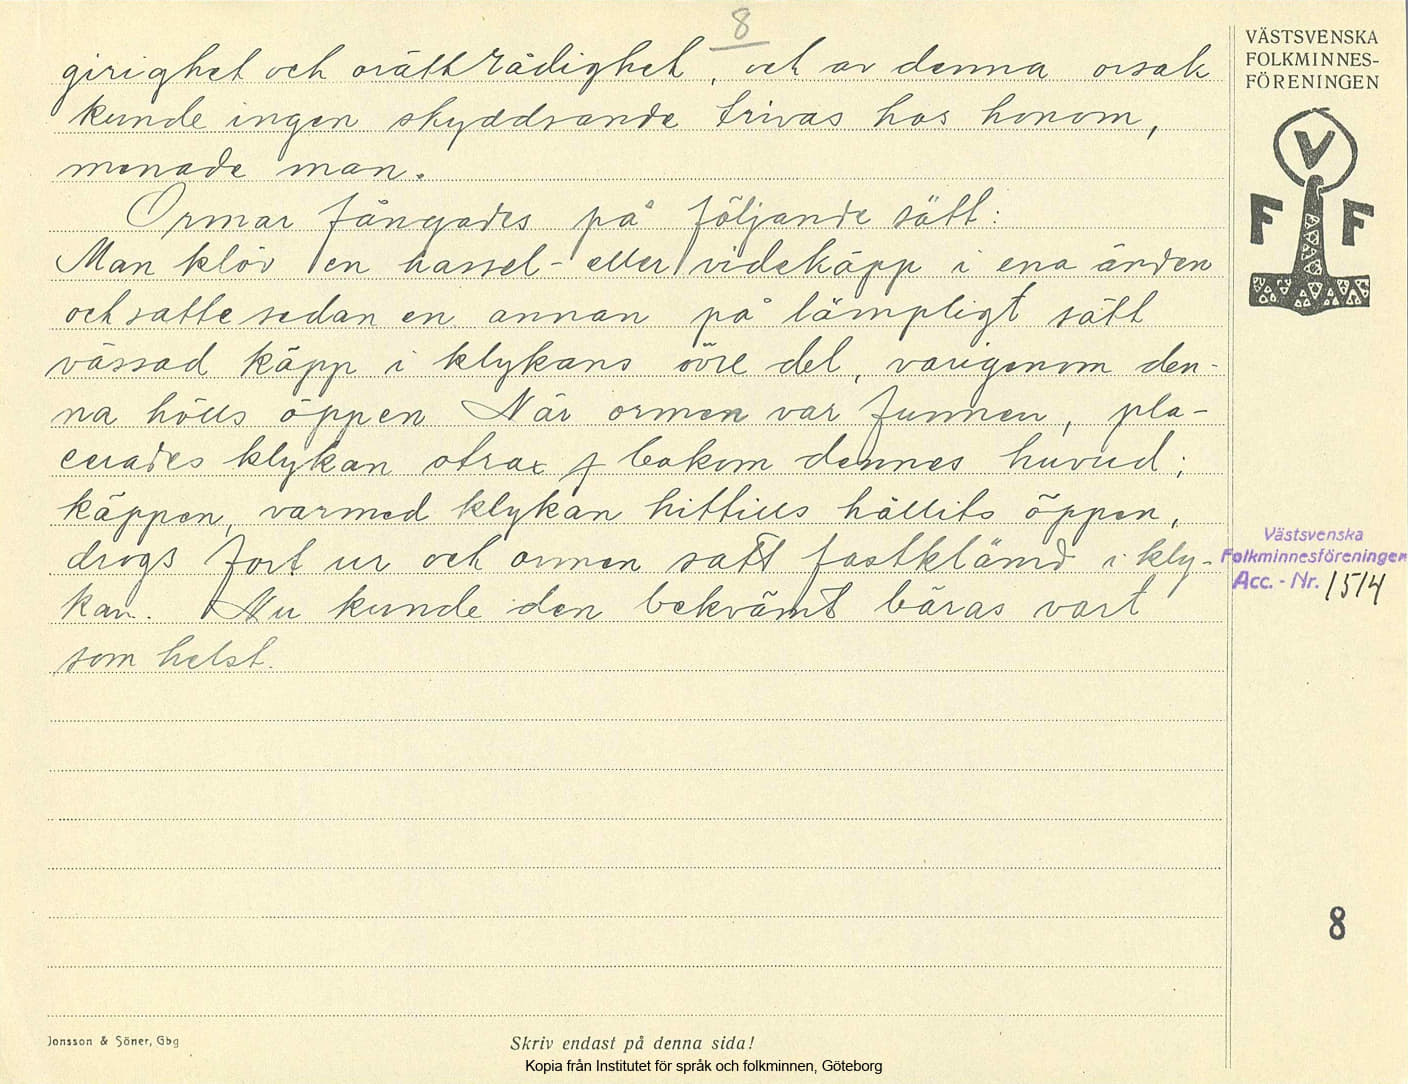 8
girighet och orättrådighet, och av denna orsak
kunde ingen skyddsande trivas hos honom,
menade man.
Ormar fångades på följande sätt:
Man klöv en hassel- eller videkäpp i ena änden
och satte sedan en annan på lämpligt sätt
vässad käpp i klykans övre del, varigenom den-
na hölls öppen När ormen var funnen, pla-
cerades klykan strax bakom dennes huvud;
käppen, varmed klykan hittills hållits öppen,
drogs fort ur och ormen satt fastklämd i kly-
kan. Nu kunde den bekvämt bäras vart
som helst.
VÄSTSVENSKA
FOLKMINNES-
FÖRENINGEN
V
F F
Västsvenska
Folkminnesföreningen
Acc. - Nr. 1514
8
Jonsson & Söner, Gbg
Skriv endast på denna sida!
Kopia från Institutet för språk och folkminnen, Göteborg